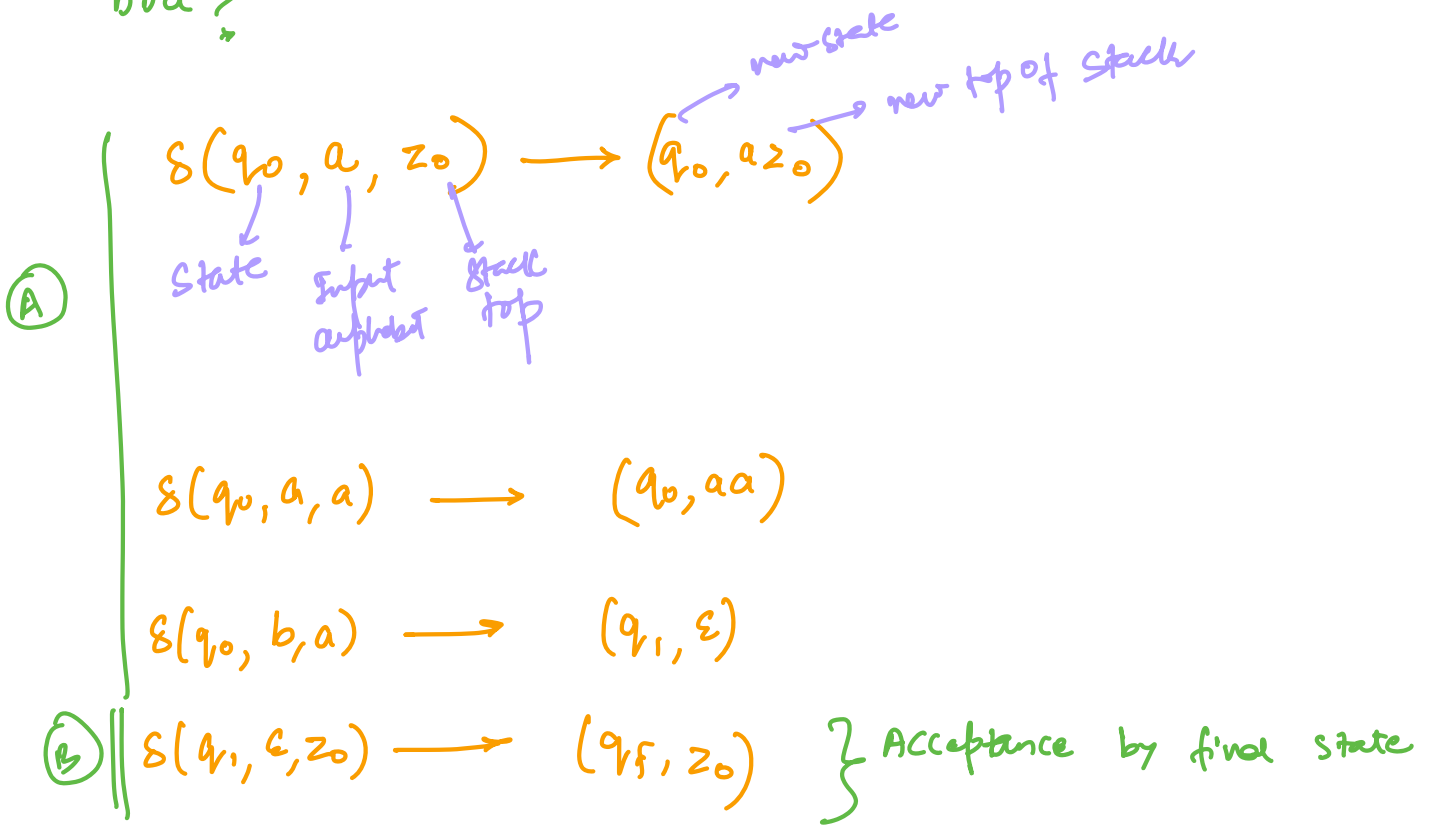 new state
new top of stack
δ(q₀, a, z₀) ⟶ (q₀, az₀)
State Input alphabet stack top
A
δ(q₀, a, a) ⟶ (q₀, aa)
δ(q₀, b, a) ⟶ (q₁, ε)
B δ(q₁, ε, z₀) ⟶ (qf, z₀) } Acceptance by final state